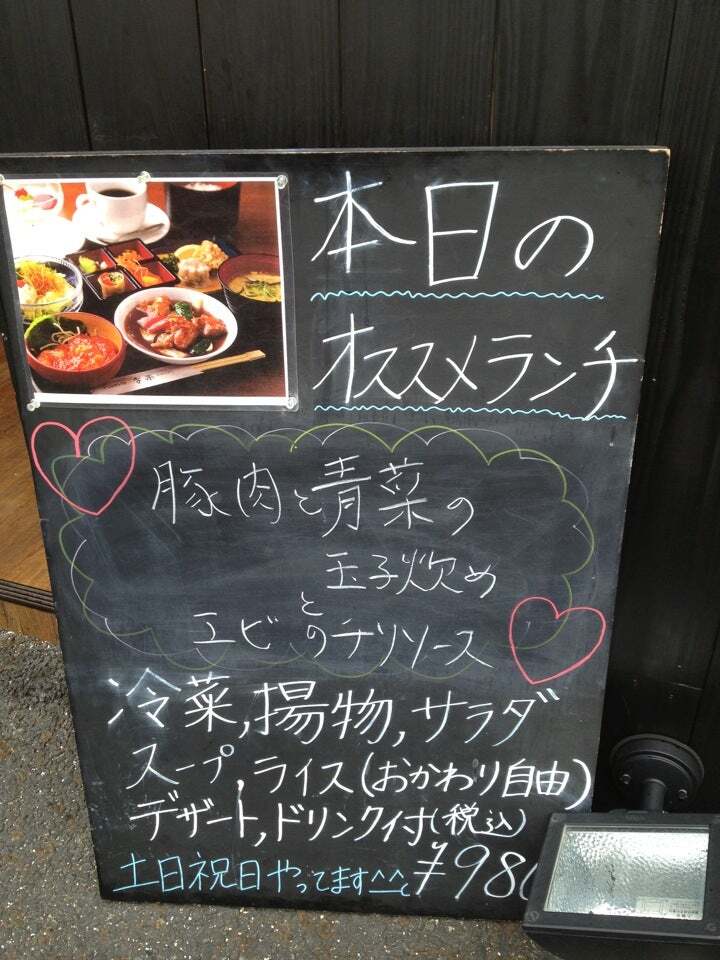 本日の
オススメランチ
豚肉と青菜の
玉子炊め
と
エビのチリソース
冷菜,揚物,サラダ
スープ,ライス(おかわり自由)
デザート,ドリンク付(税込)
土日祝日やってます^^
¥98